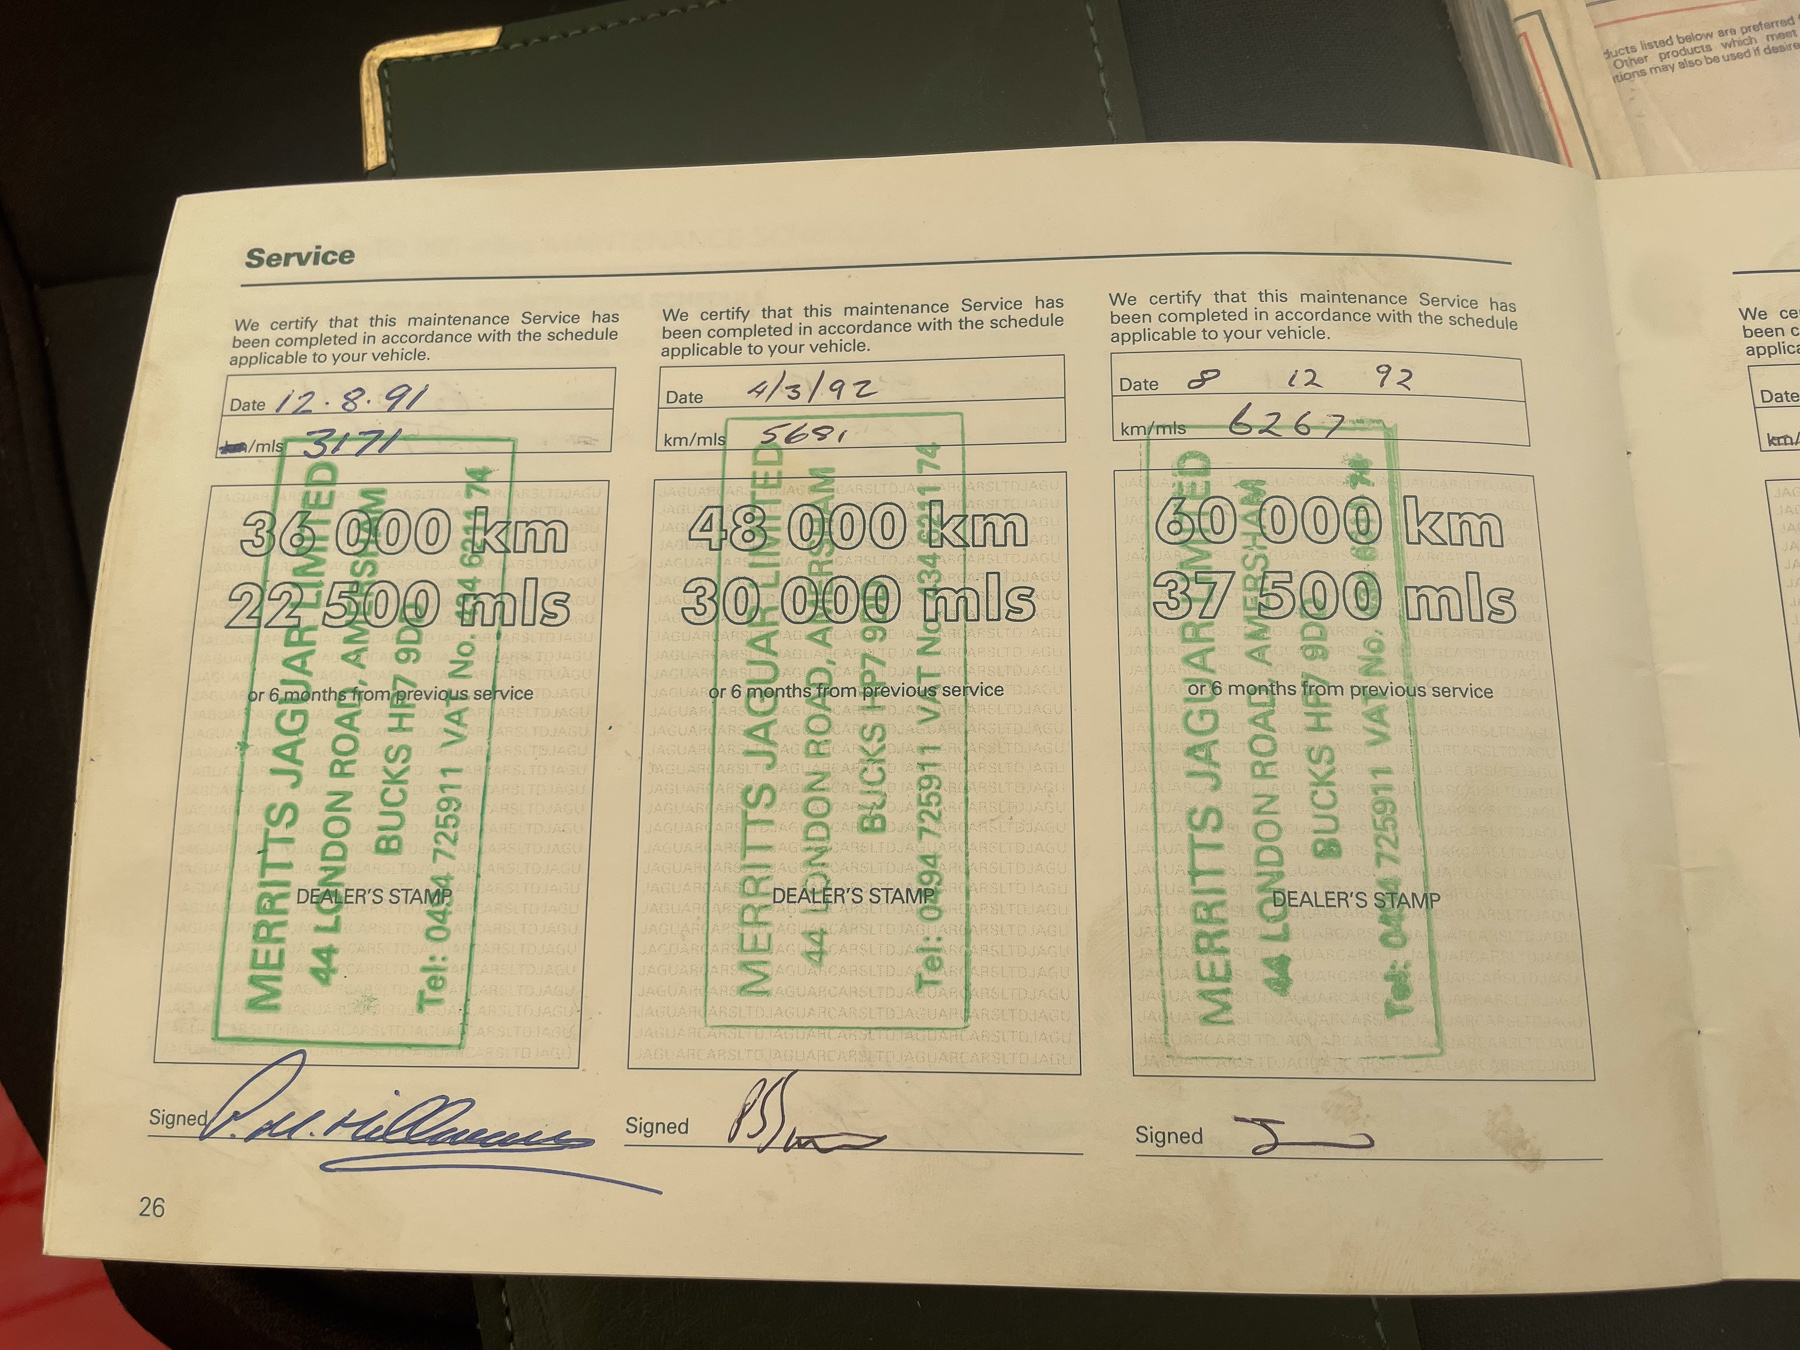 ducts listed below are preferred
Other products which meet
tions may also be used if desire
Service
We certify that this maintenance Service has
been completed in accordance with the schedule
applicable to your vehicle.
Date 12.8.91
km/mls 3171
36 000 km
22 500 mls
or 6 months from previous service
DEALER'S STAMP
MERRITTS JAGUAR LIMITED
44 LONDON ROAD, AMERSHAM
BUCKS HP7 9D
Tel: 0494 725911 VAT No. 434 6211 74
Signed P. M. Hillman
We certify that this maintenance Service has
been completed in accordance with the schedule
applicable to your vehicle.
Date 4/3/92
km/mls 5681
48 000 km
30 000 mls
or 6 months from previous service
DEALER'S STAMP
MERRITTS JAGUAR LIMITED
44 LONDON ROAD, AMERSHAM
BUCKS HP7 9D
Tel: 0494 725911 VAT No. 434 6211 74
Signed
We certify that this maintenance Service has
been completed in accordance with the schedule
applicable to your vehicle.
Date 8 12 92
km/mls 6267
60 000 km
37 500 mls
or 6 months from previous service
DEALER'S STAMP
MERRITTS JAGUAR LIMITED
44 LONDON ROAD, AMERSHAM
BUCKS HP7 9D
Tel: 0494 725911 VAT No.
Signed
26
We ce
been c
applica
Date
km/